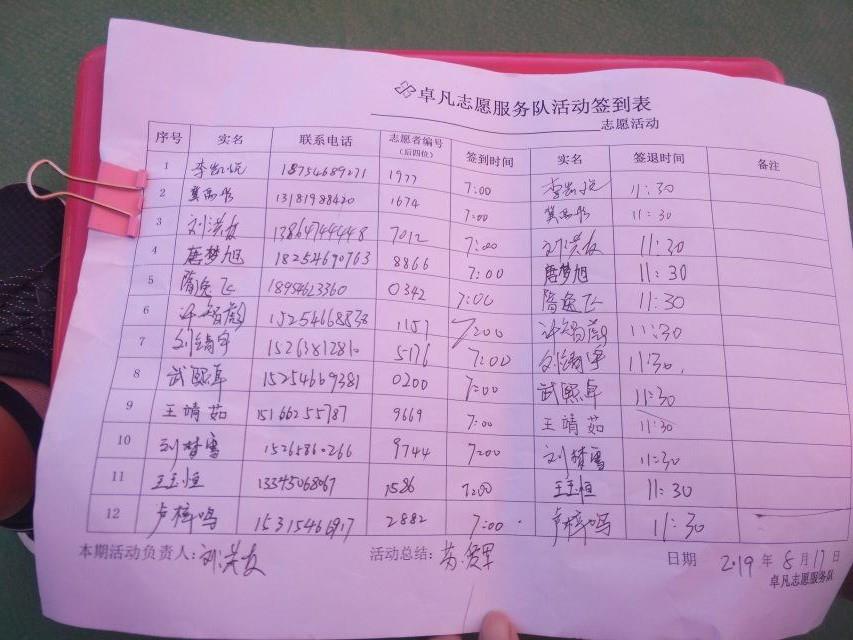 卓凡志愿服务队活动签到表
志愿活动
序号 实名 联系电话 志愿者编号（后四位） 签到时间 实名 签退时间 备注
1 李凯悦 18754689271 1977 7:00 李凯悦 11:30
2 13181988420 1674 7:00 11:30
3 刘洪友 13864744448 7012 7:00 刘洪友 11:30
4 唐梦旭 18254690763 8866 7:00 唐梦旭 11:30
5 隋逸飞 18954623360 0342 7:00 隋逸飞 11:30
6 15254668838 1157 7:00 11:30
7 刘靖宇 15263812810 5176 7:00 刘靖宇 11:30
8 武熙卓 15254669381 0200 7:00 武熙卓 11:30
9 王靖茹 15166255787 9669 7:00 王靖茹 11:30
10 刘梦雪 15265860266 9744 7:00 刘梦雪 11:30
11 王玉恒 13345068067 1586 7:00 王玉恒 11:30
12 卢梓鸣 15315466917 2882 7:00 卢梓鸣 11:30
本期活动负责人：刘洪友 活动总结： 日期 2019年8月17日
卓凡志愿服务队